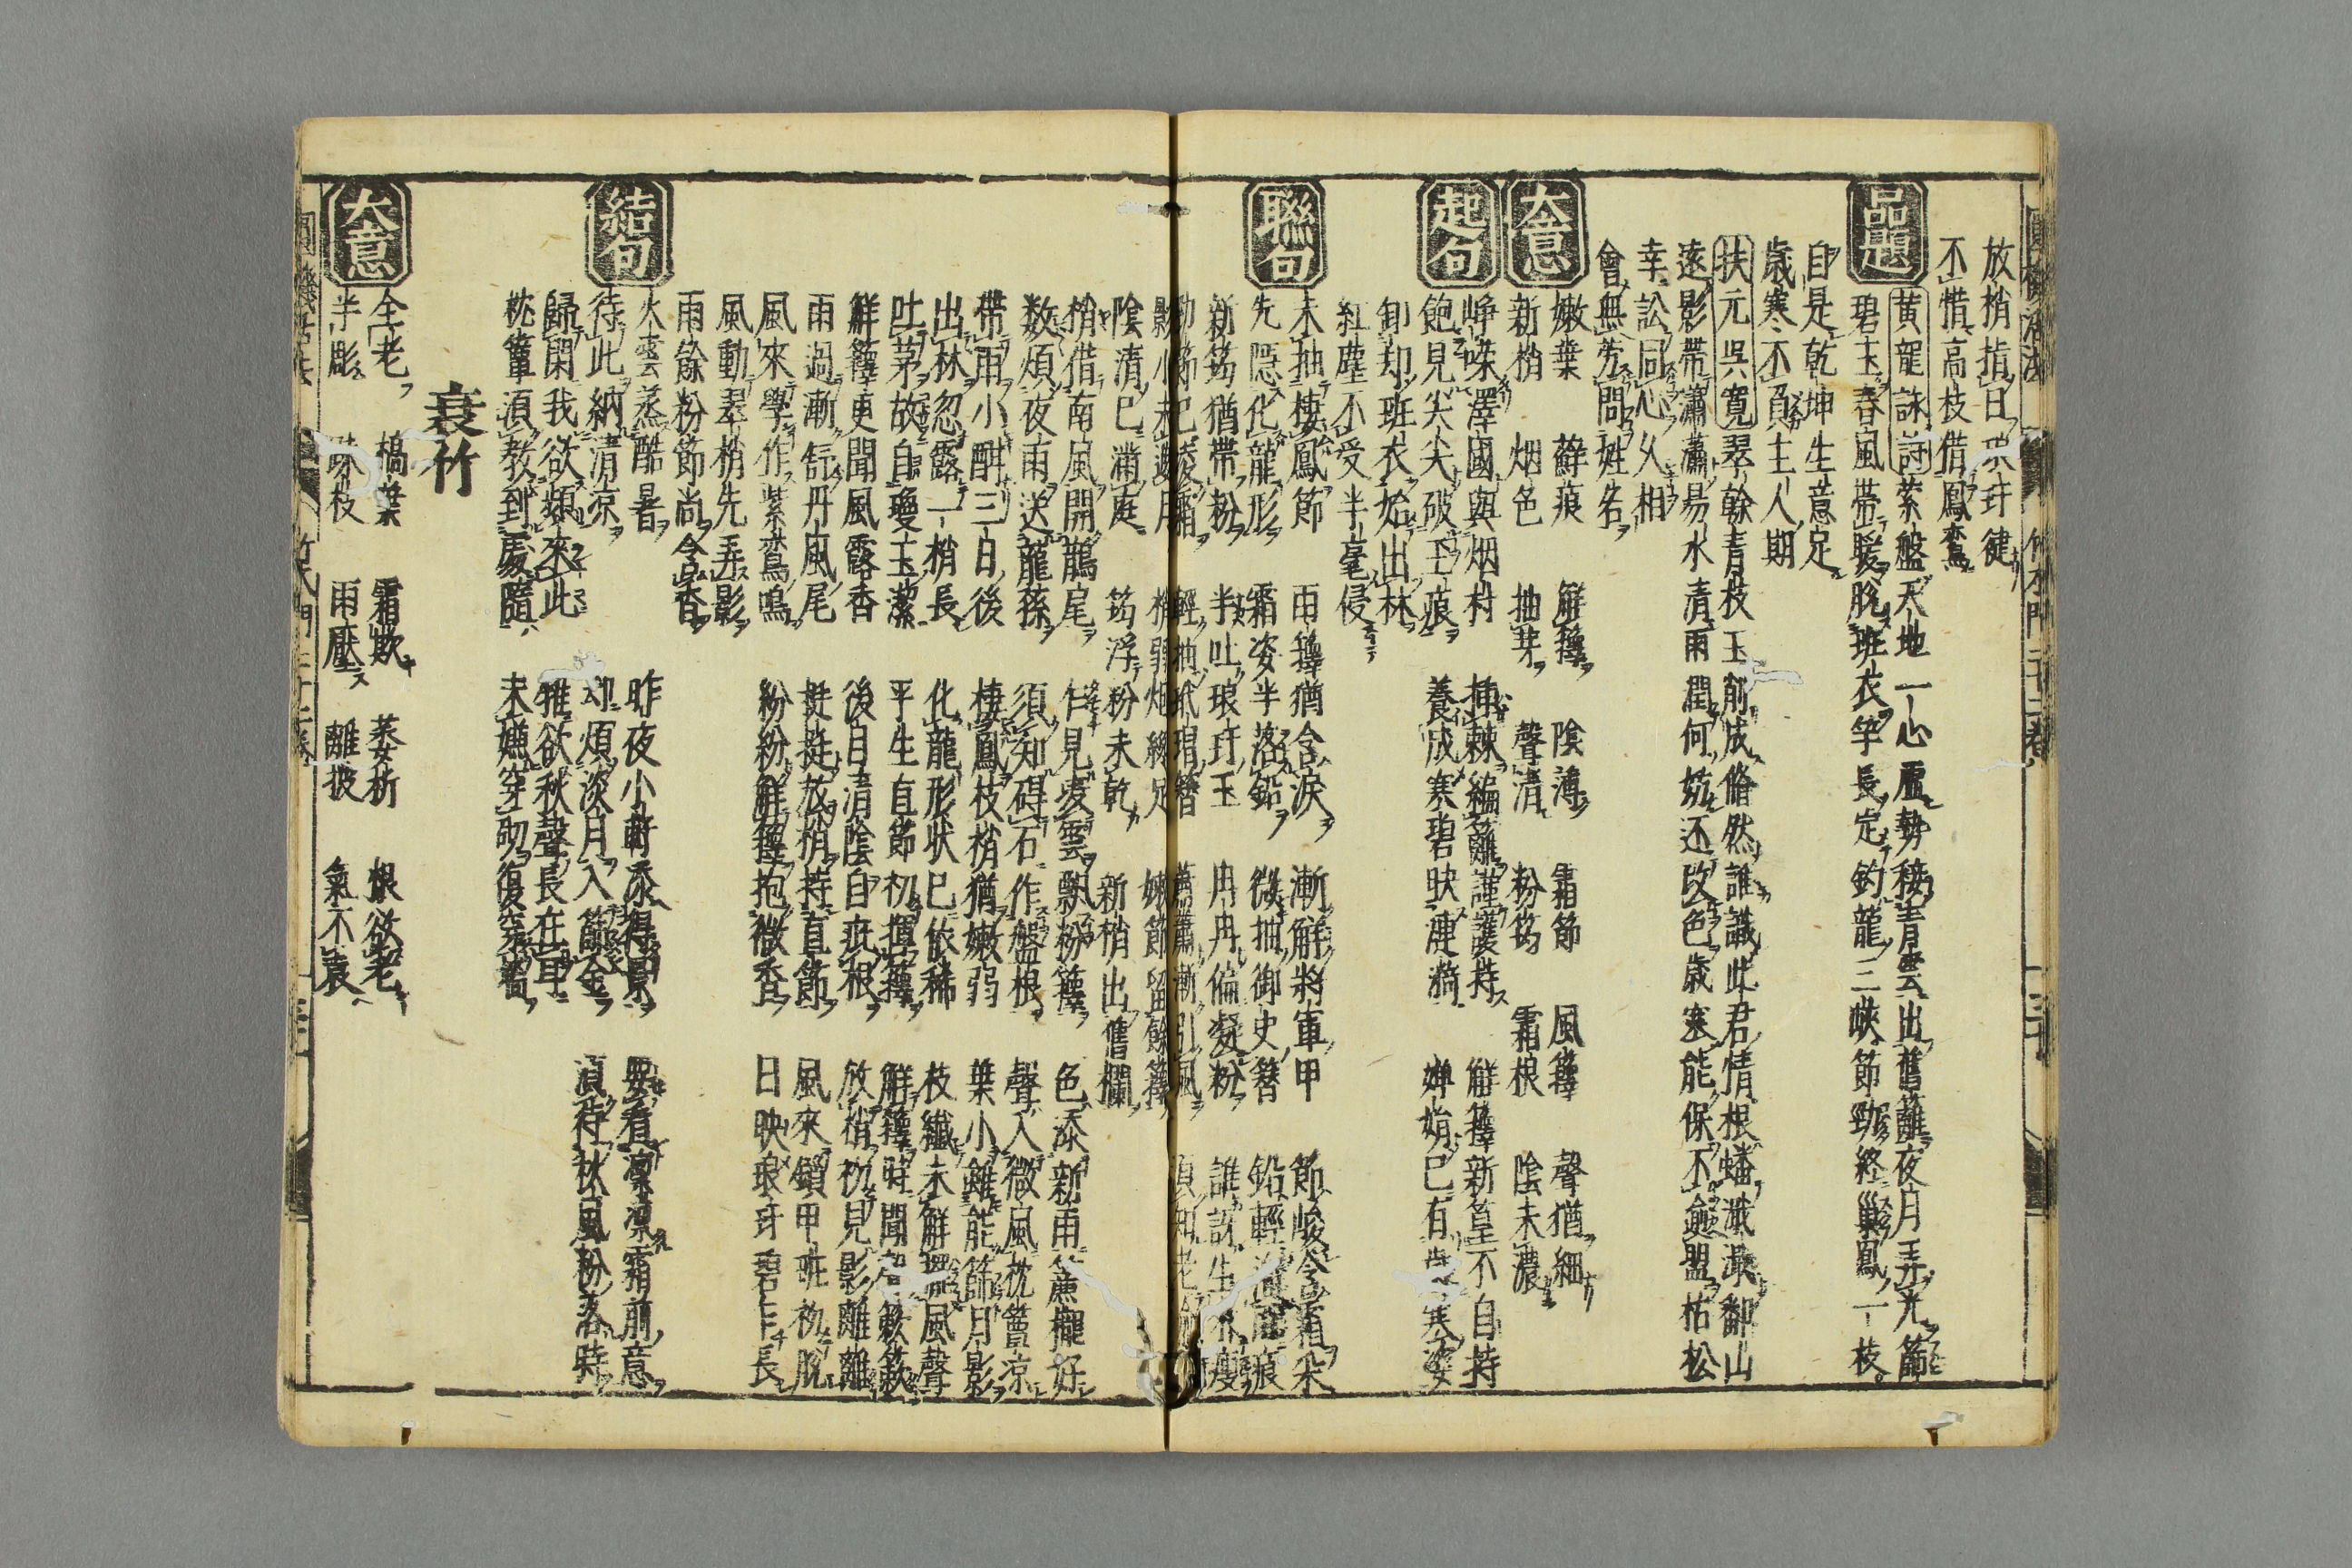 放梢指日琅玕健
不惜高枝借鳳鸞
品題
黄龍詠詩 縈盤天地一心 勢 青雲出舊籬夜月弄光篩
碧玉春風帶暖脫班衣竿長定釣龍三峽節勁終巢鳳一枝
自是乾坤生意定
歳寒不負主人期
扶元吳寬 翠幹青枝玉削成翛然誰識此君情根蟠 山
遠影帶瀟瀟易水清雨潤何妨還改色歳寒能保不 盟枯松
幸 同心久相
會無 問姓名
大意
嫩葉 蘚痕 解籜 陰薄 霜節 風籜 聲猶細
新梢 烟色 抽芽 聲清 粉筠 霜根 陰未濃
起句
崢嶸澤國與烟村 揷棘編籬謹護持 解籜新篁不自持
飽見尖尖破玉痕 養成寒碧映漣漪 嬋娟已有歳寒姿
卸却班衣始出林
紅塵不受半毫侵
聯句
未抽棲鳳節 雨籜猶含淚 漸解將軍甲 節峻含霜朵
先隱化龍形 霜姿半落鉛 微抽御史簪 鉛輕 痕
新筠猶帶粉 半吐琅玕玉 冉冉偏凝粉 誰訝生 瘦
勁節已凌霜 輕抽玳瑁簪 蕭蕭漸引風 須知老
影小未遮月 梢弱烟絲足 嫩節留餘籜
陰清已滿庭 筠浮粉未乾 新梢出舊欄
梢借南風開鵲尾 乍見凌雲飄粉籜 色添新雨簾櫳好
数煩夜雨送龍孫 須知碍石作盤根 聲入微風枕簟凉
帶雨小酣三日後 棲鳳枝梢猶嫩弱 葉小雖能篩月影
出林忽露一梢長 化龍形状已依稀 枝纖未解 風聲
吐茅故自瓊玉潔 平生直節初擅籜 解籜時聞聲簌簌
解籜更聞風露香 後日清陰自疵根 放梢初見影離離
雨過漸舒丹鳳尾 挺挺放梢持直節 風來鎖甲班初脫
風來學作紫鸞鳴 紛紛解籜抱微香 日映琅玕碧乍長
風動翠梢先弄影
雨餘粉節尚含香
結句
火雲蒸酷暑 昨夜小軒添得景 要看凛凛霜前意
待此納清凉 却煩淡月入篩金 須待秋風粉落時
歸閑我欲頻來此 雅欲秋聲長在耳
枕簟須教到處隨 未嫌穿砌復穿牆
衰竹
大意
全老 槁葉 霜欺 萎折 根欲老
半彫 踈枝 雨壓 離披 氣不衰